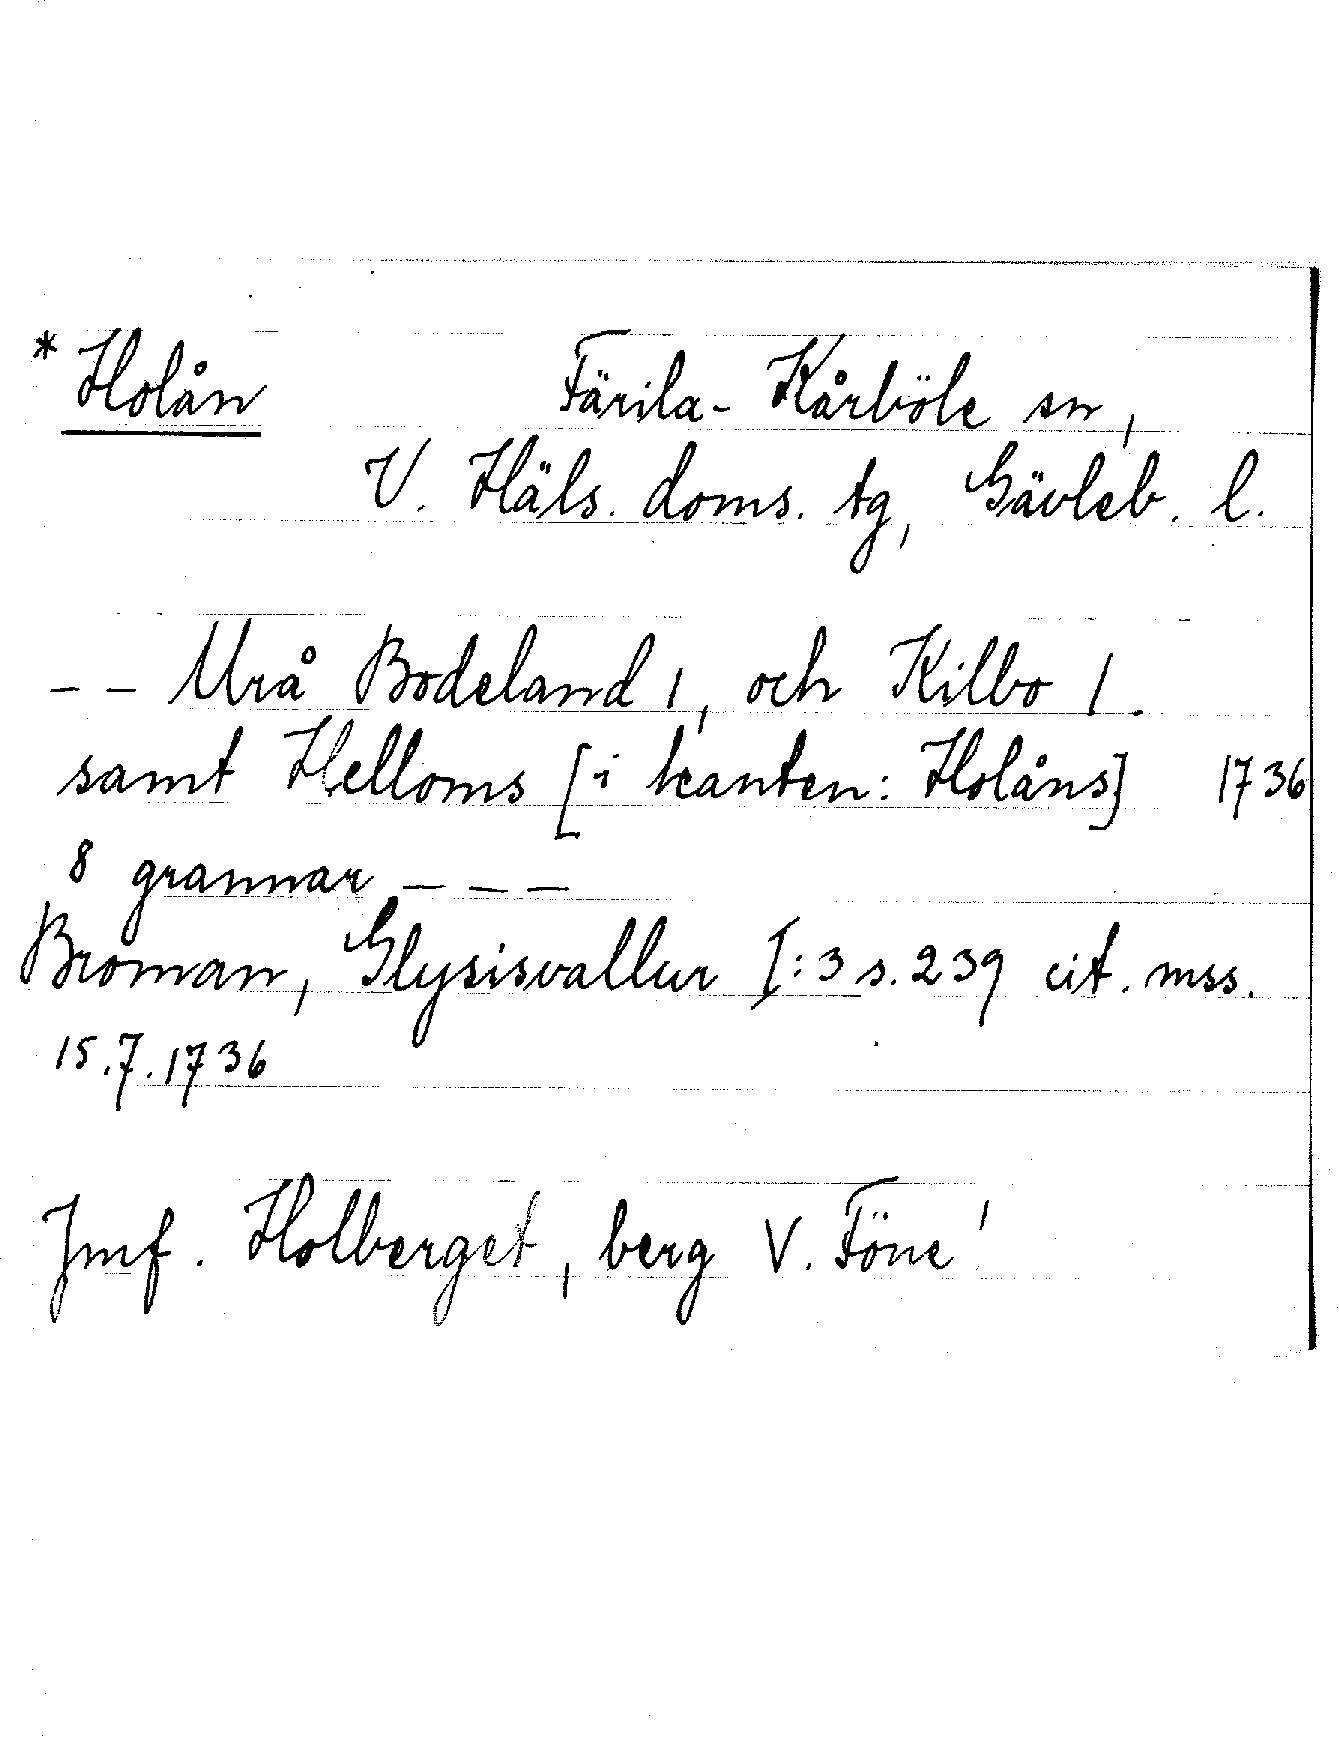 * Holån Färila-Kårböle sn,
V. Häls. doms. tg, Gävleb. l.
-- Urå Bodeland 1, och Kilbo 1.
samt Helloms [i kanten: Holåns] 1736
8 grannar ---
Broman, Glysisvallur I:3 s. 239 cit. mss.
15.7.1736
Jmf. Holberget, berg V. Föne!